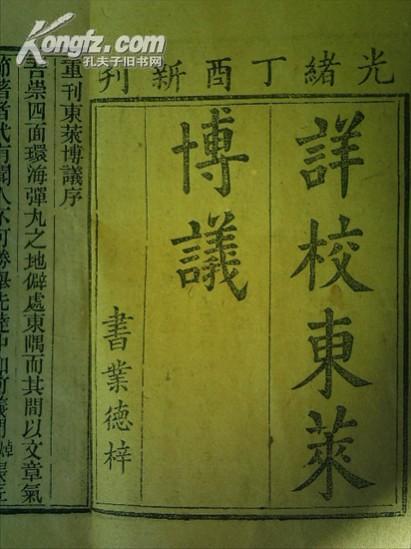 Kongfz.com
孔夫子旧书网
光緒丁酉新刊
詳校東萊
博議
書業德梓
重刊東萊博議序
吾崇四面環海彈丸之地僻處東隅而其間以文章氣
節著者代有聞人不可勝舉先達中如何義門